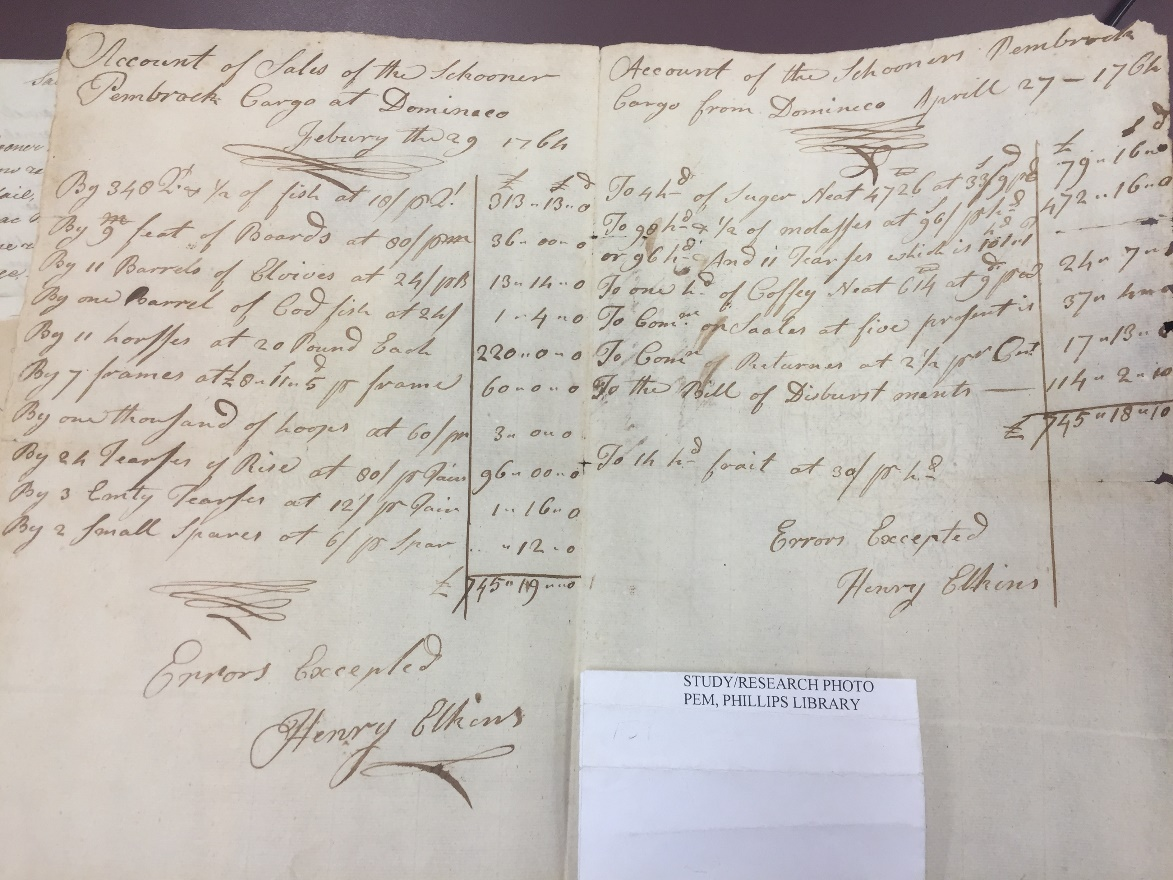 Account of Sales of the Schooner
Pembrock Cargo at Domineco
Febury the 29 1764
£ s d
By 348 Qt & 1/2 of fish at 18/ pr Qt 313 - 13 - 0
By 9 m feat of Boards at 80/ pr m 36 - 00 - 0
By 11 Barrels of Eloives at 24/ pr B 13 - 14 - 0
By one Barrel of Cod fish at 24/ 1 - 4 - 0
By 11 horsses at 20 Pound Each 220 - 0 - 0
By 7 frames at £8 - 11 - 5 pr frame 60 - 0 - 0
By one thousand of hoops at 60/ pr m 3 - 0 - 0
By 24 Tearses of Rise at 80/ pr 96 - 00 - 0
By 3 Emty Tearses at 12/ pr 1 - 16 - 0
By 2 Small Spares at 6/ pr Spar - 12 - 0
£ 745 - 19 - 0
Errors Excepted
Henry Elkins
Account of the Schooners Pembrock
Cargo from Domineco Aprill 27 - 1764
£ s d
To 4 hd of Suger Neat 4726 at 33/9 pr 79 - 16 - 0
To 98 hd & 1/2 of molasses at 96/ pr hd 472 - 16 - 0
or 96 hd And 11 Tearses which is
To one hd of Coffey Neat 614 at 9 24 - 7 -
To Comn on Saales at five prsent is 37 -
To Comn Returnes at 2 1/2 pr Cnt 17 - 13 - 0
To the Bill of Disburst mants 114 - 2 - 10
£ 745 - 18 - 10
To 14 hd frait at 30/ pr hd
Errors Excepted
Henry Elkins
STUDY/RESEARCH PHOTO
PEM, PHILLIPS LIBRARY